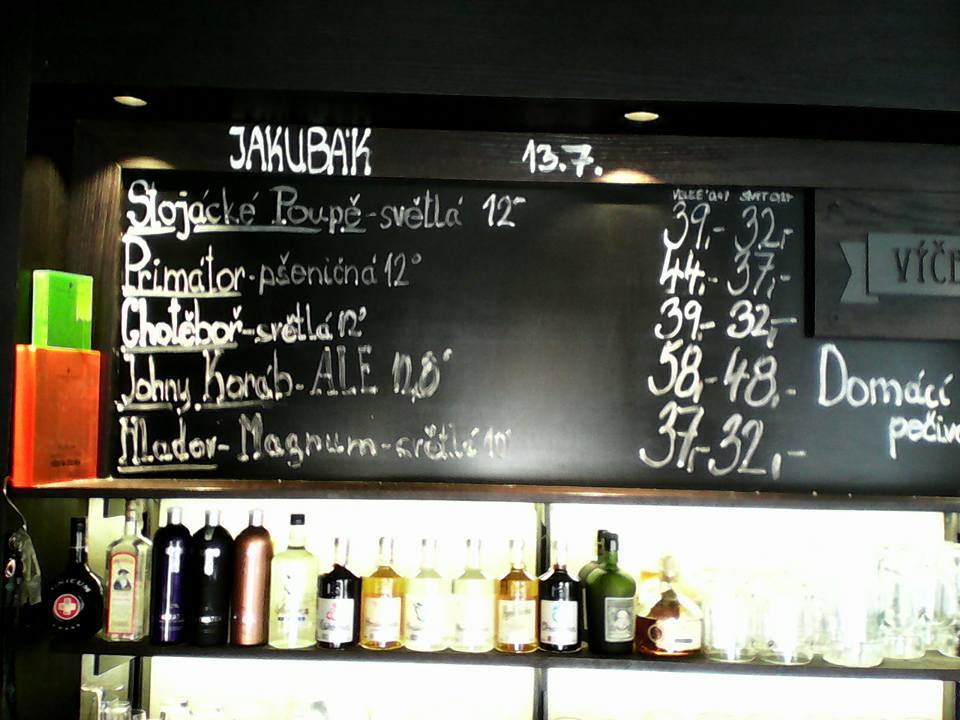 JAKUBÁK 13.7.
VELKÉ 0,4l
Stojácké Poupě-světlá 12° 39,- 32,-
Primátor-pšeničná 12° 44,- 37,-
Chotěboř-světlá 12° 39,- 32,-
Johny Koráb-ALE 11,8° 58,- 48,-
Hladov-Magnum-světlá 10° 37,- 32,-
Domácí
UNICUM